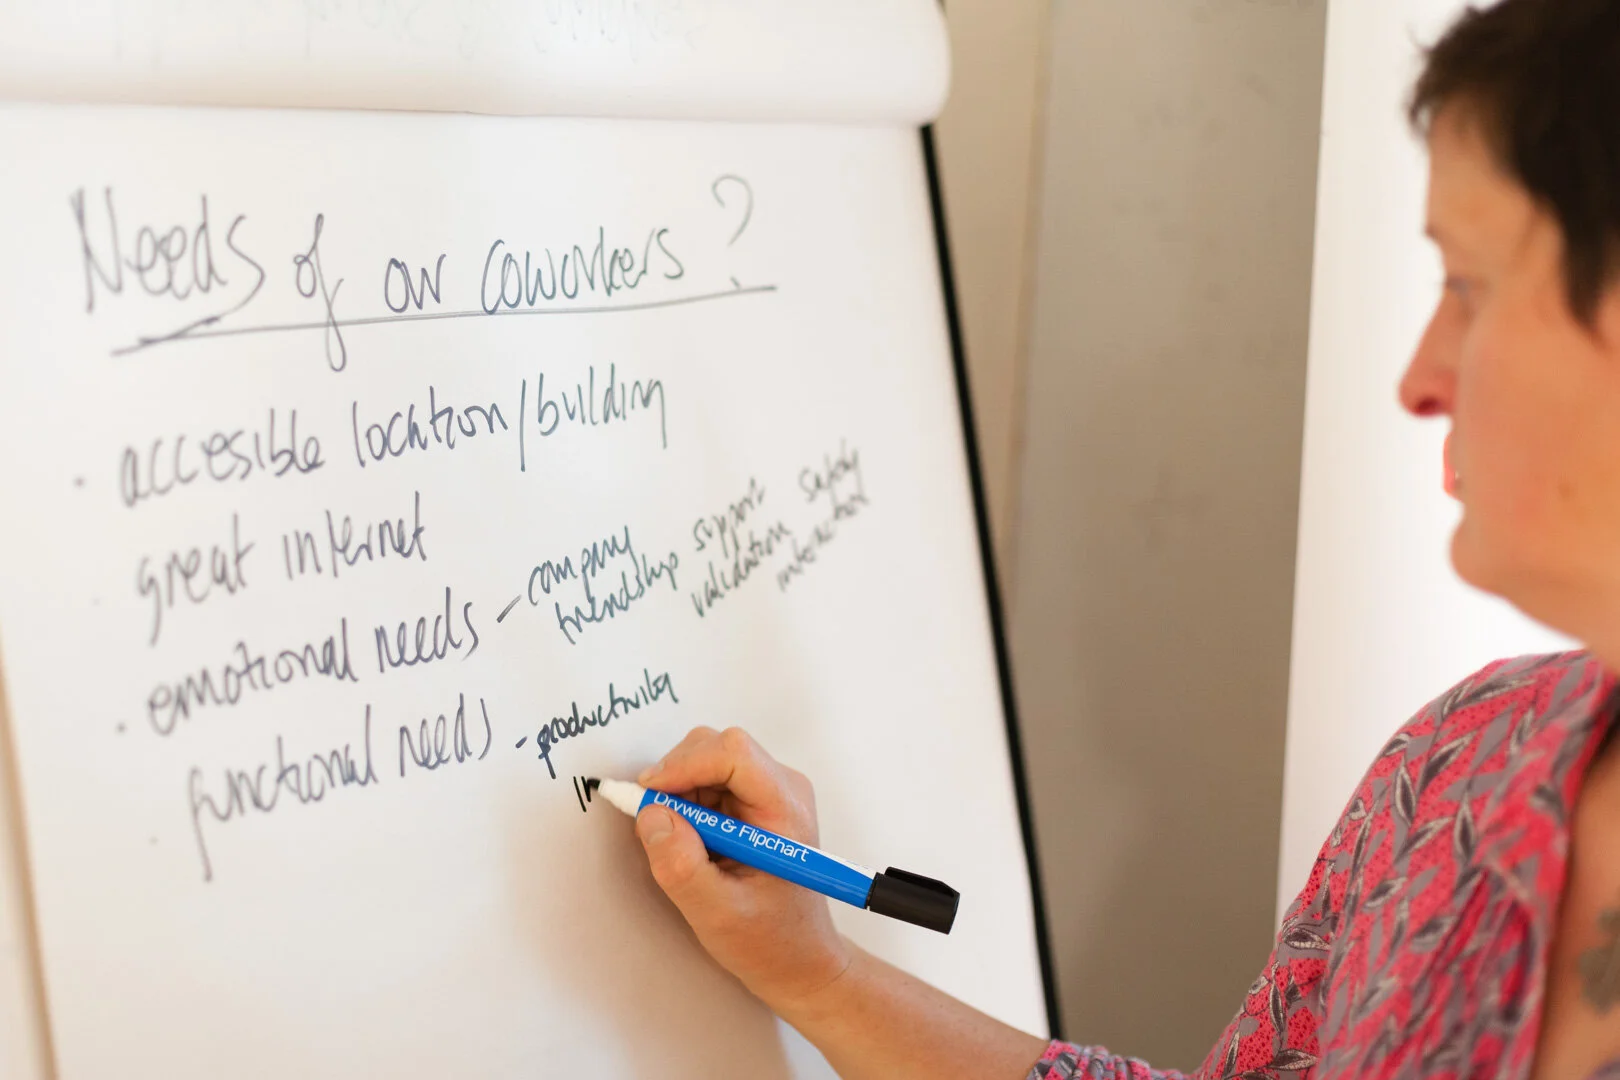 Needs of our coworkers?
• accesible location/building
• great internet
• emotional needs - company support safety
friendship validation interaction
• functional needs - productivity
Drywipe & Flipchart